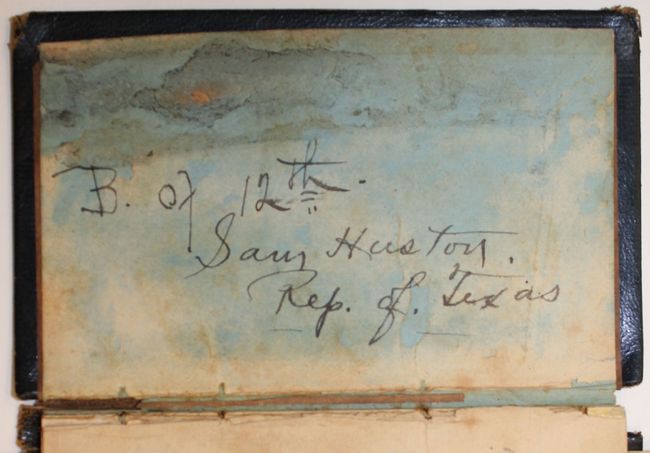 B. of 12th.
Sam Huston.
Rep. of. Texas